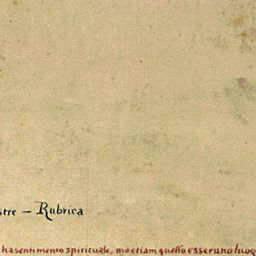 stre – Rubrica
ha sentimento spirituale, ma etiam quello esser uno luog